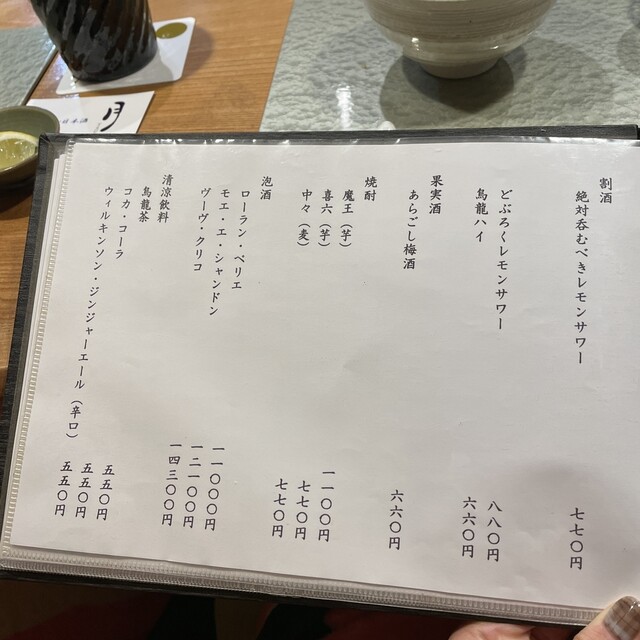 割酒
絶対呑むべきレモンサワー 七七〇円
どぶろくレモンサワー 八八〇円
烏龍ハイ 六六〇円
果実酒
あらごし梅酒 六六〇円
焼酎
魔王(芋) 一一〇〇円
喜六(芋) 七七〇円
中々(麦) 七七〇円
泡酒
ローラン・ペリエ 一一〇〇〇円
モエ・エ・シャンドン 一二一〇〇円
ヴーヴ・クリコ 一四三〇〇円
清涼飲料
烏龍茶 五五〇円
コカ・コーラ 五五〇円
ウィルキンソン・ジンジャーエール(辛口) 五五〇円
月